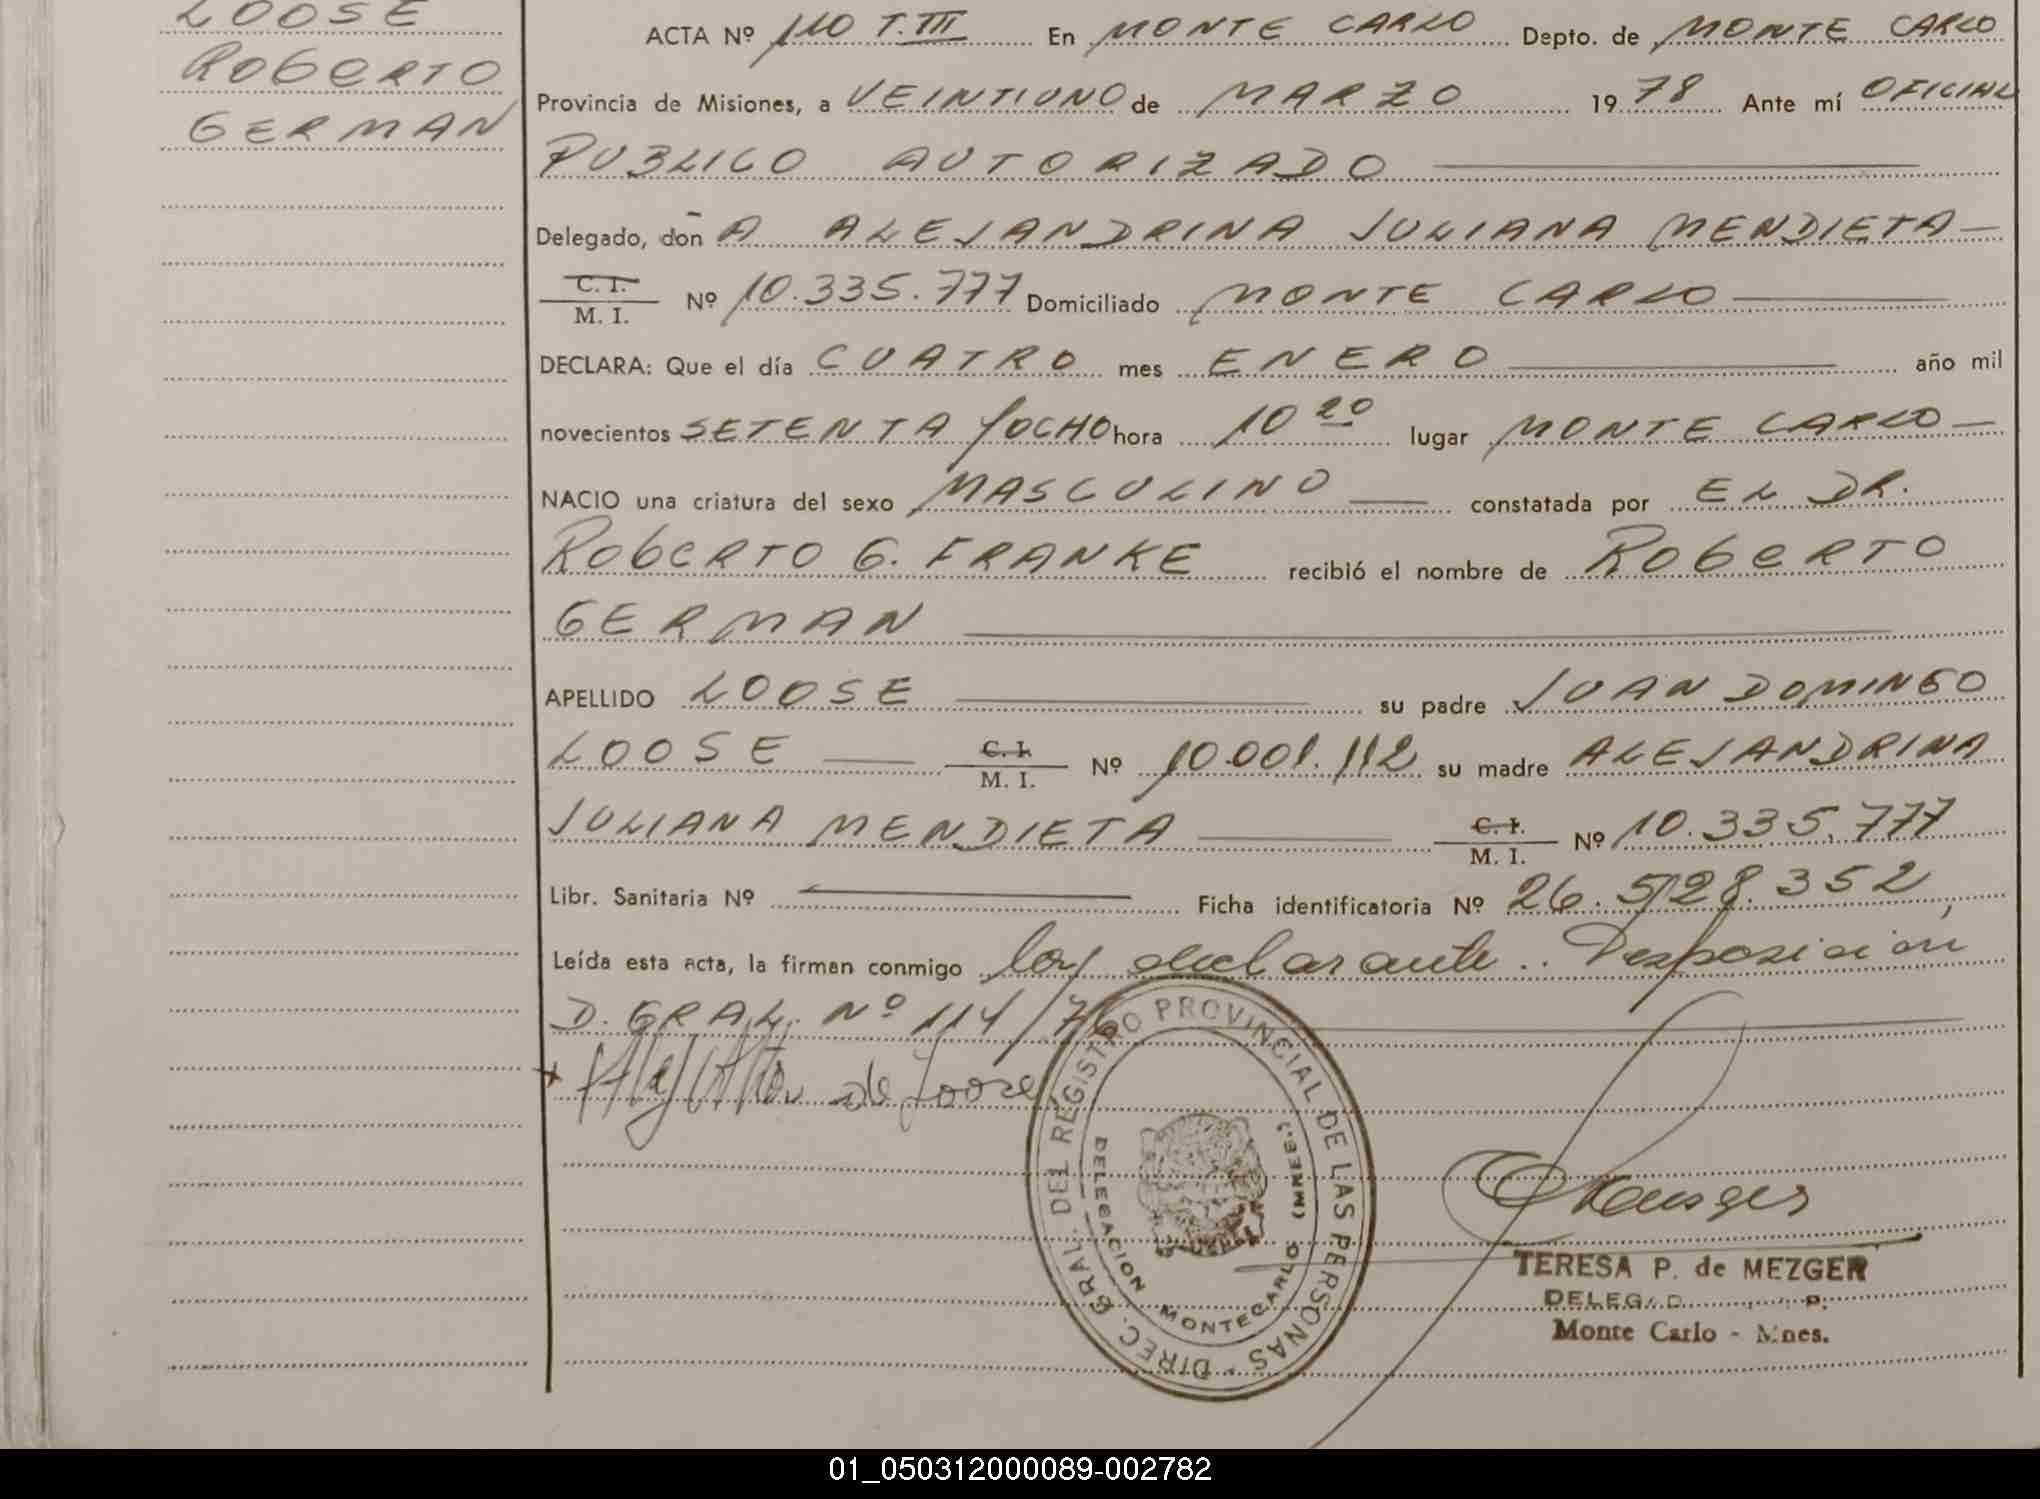 LOOSE
ROBERTO
GERMAN
ACTA Nº 110 T.III En MONTE CARLO Depto. de MONTE CARLO
Provincia de Misiones, a VEINTIUNO de MARZO 1978 Ante mí OFICIAL
PUBLICO AUTORIZADO
Delegado, don A ALEJANDRINA JULIANA MENDIETA
C. I.
M. I. Nº 10.335.777 Domiciliado MONTE CARLO
DECLARA: Que el día CUATRO mes ENERO año mil
novecientos SETENTA Y OCHO hora 10 20 lugar MONTE CARLO
NACIO una criatura del sexo MASCULINO constatada por EL DR.
ROBERTO G. FRANKE recibió el nombre de ROBERTO
GERMAN
APELLIDO LOOSE su padre JUAN DOMINGO
LOOSE C. I. M. I. Nº 10.001.112 su madre ALEJANDRINA
JULIANA MENDIETA C. I. M. I. Nº 10.335.777
Libr. Sanitaria Nº Ficha identificatoria Nº 26.528.352,
Leída esta acta, la firman conmigo los declarante. Disposición
D. GRAL. Nº 114/76
de Loose
DIREC. GRAL. DEL REGISTRO PROVINCIAL DE LAS PERSONAS
DELEGACION MONTECARLO (MNES.)
TERESA P. de MEZGER
Monte Carlo - Mnes.
01_050312000089-002782